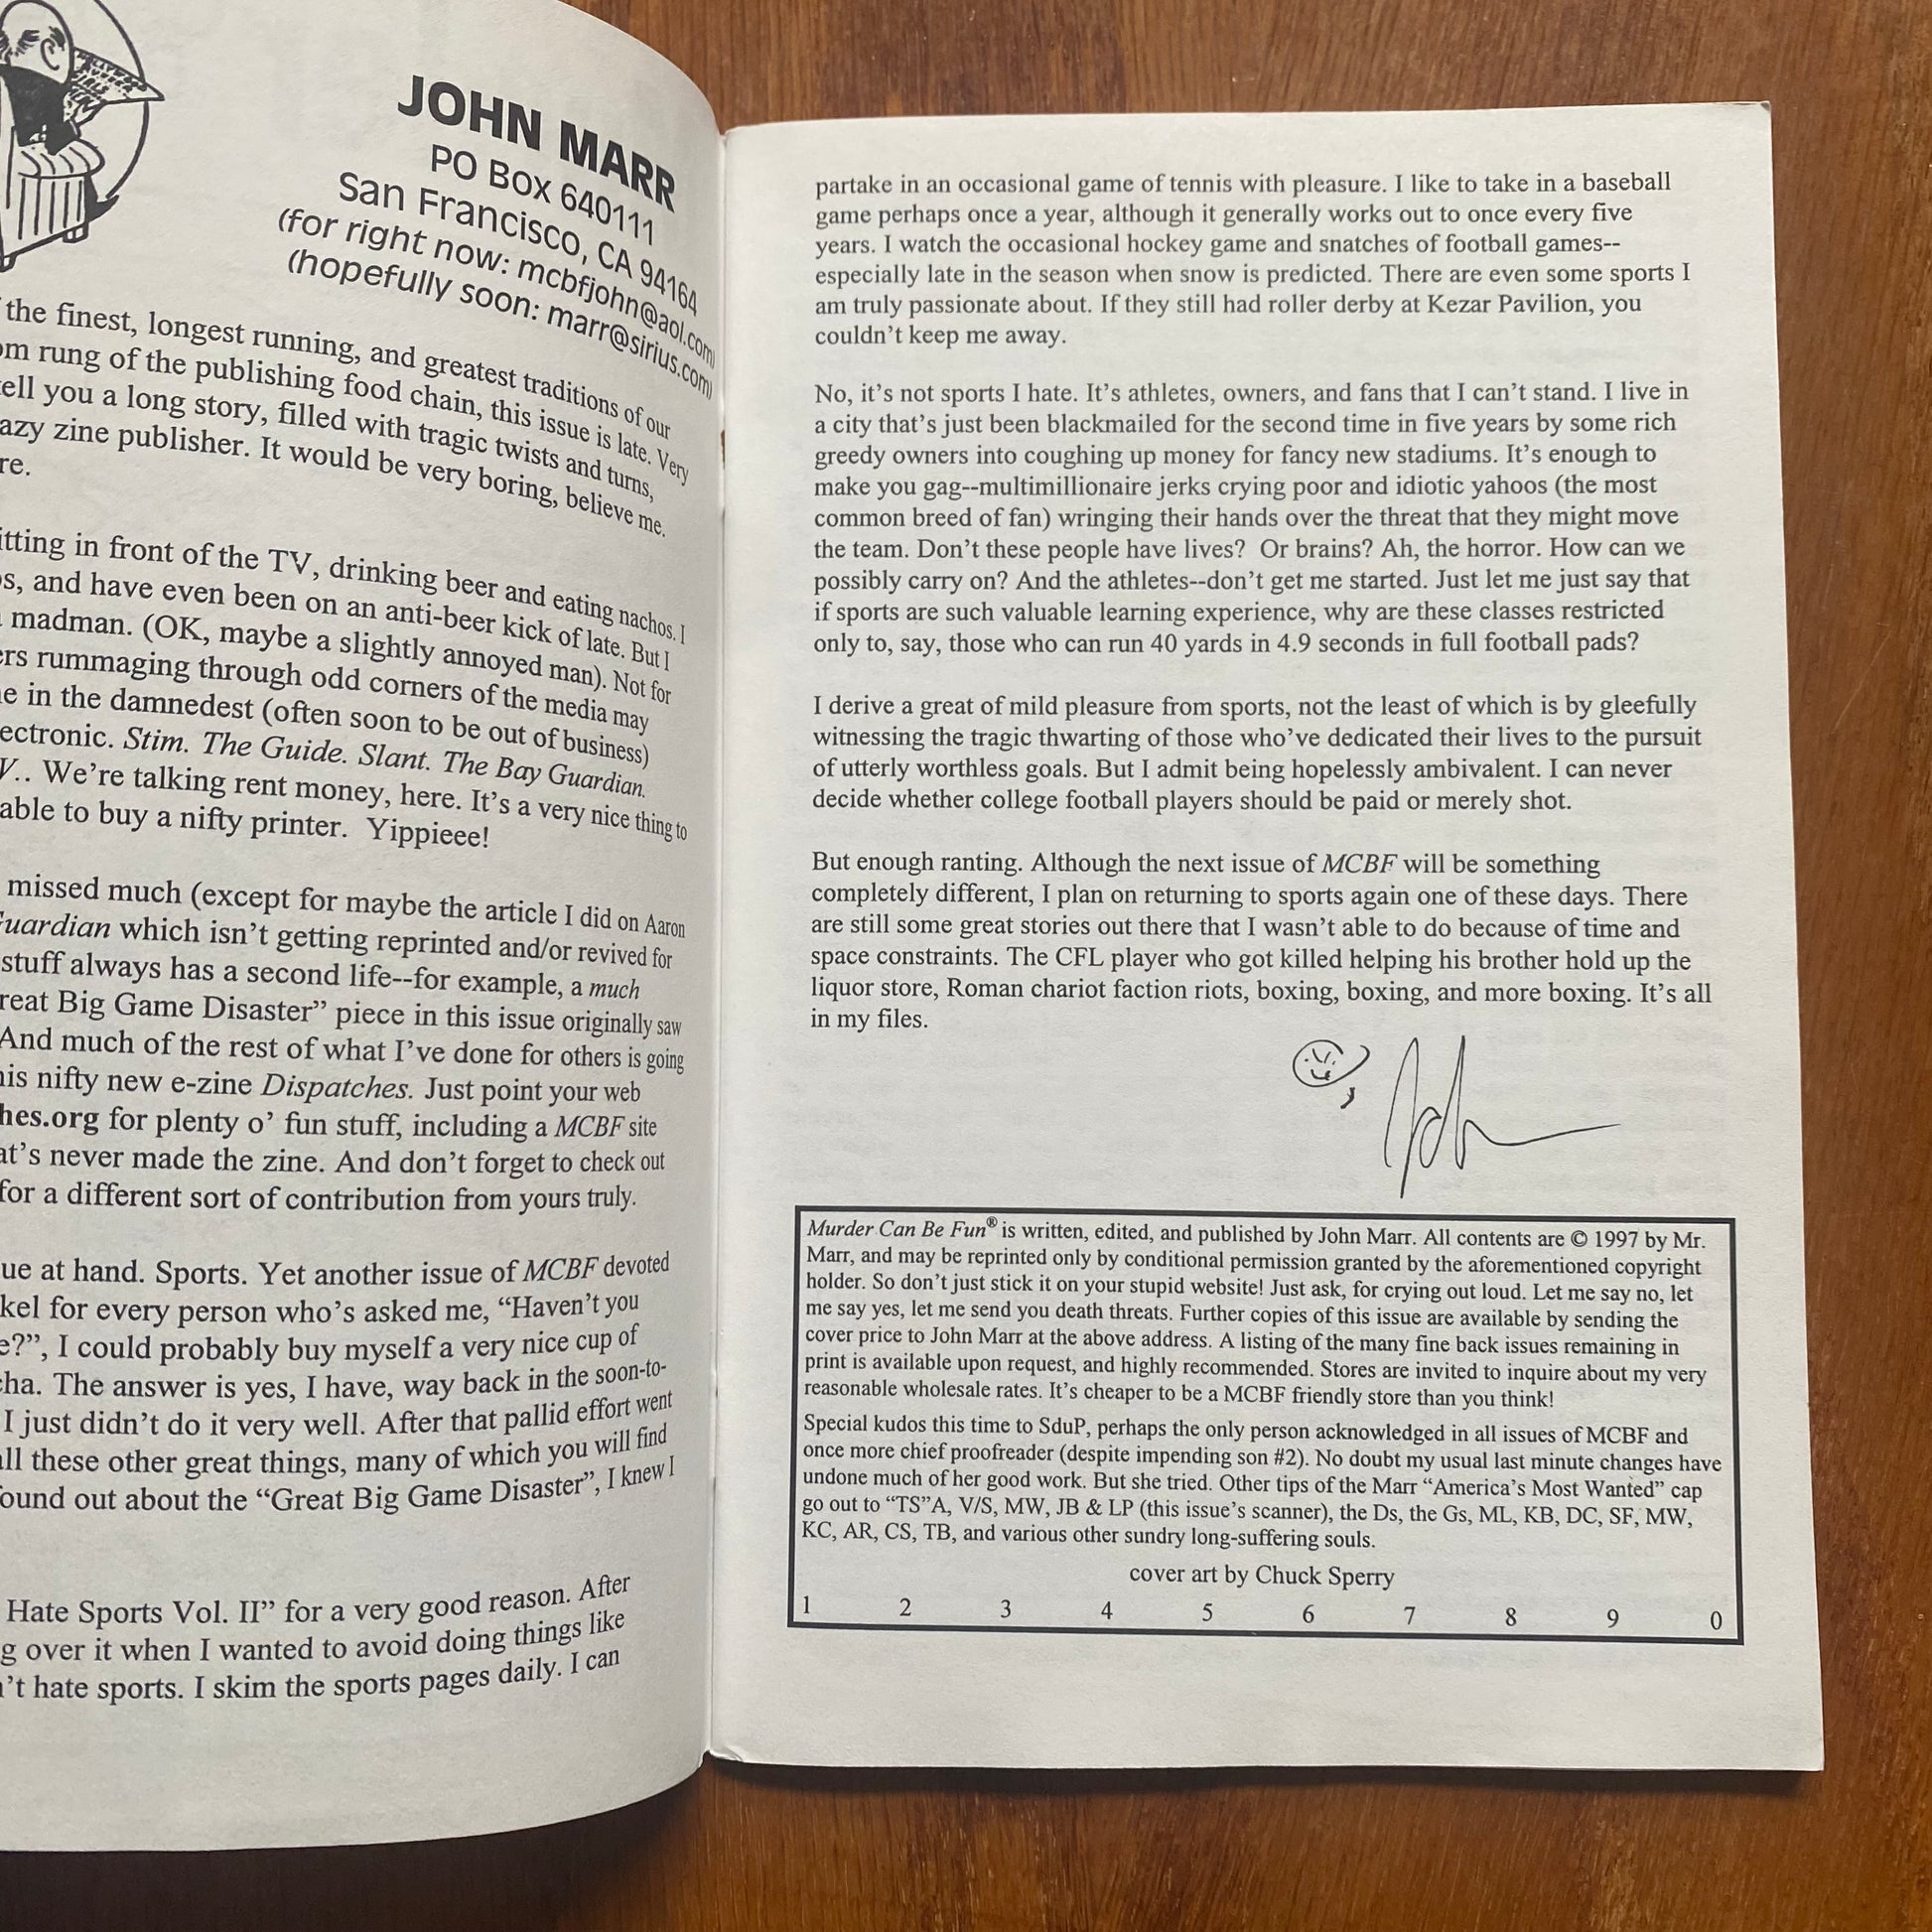 JOHN MARR
PO Box 640111
San Francisco, CA 94164
(for right now: mcbfjohn@aol.com)
(hopefully soon: marr@sirius.com)
the finest, longest running, and greatest traditions of our
rung of the publishing food chain, this issue is late. Very
tell you a long story, filled with tragic twists and turns,
zine publisher. It would be very boring, believe me.
re.
itting in front of the TV, drinking beer and eating nachos. I
s, and have even been on an anti-beer kick of late. But I
madman. (OK, maybe a slightly annoyed man). Not for
ers rummaging through odd corners of the media may
e in the damnedest (often soon to be out of business)
ectronic. Stim. The Guide. Slant. The Bay Guardian.
V.. We're talking rent money, here. It's a very nice thing to
able to buy a nifty printer.  Yippieee!
missed much (except for maybe the article I did on Aaron
uardian which isn't getting reprinted and/or revived for
stuff always has a second life--for example, a much
reat Big Game Disaster" piece in this issue originally saw
And much of the rest of what I've done for others is going
his nifty new e-zine Dispatches. Just point your web
hes.org for plenty o' fun stuff, including a MCBF site
at's never made the zine. And don't forget to check out
for a different sort of contribution from yours truly.
ue at hand. Sports. Yet another issue of MCBF devoted
kel for every person who's asked me, "Haven't you
e?", I could probably buy myself a very nice cup of
ha. The answer is yes, I have, way back in the soon-to-
I just didn't do it very well. After that pallid effort went
all these other great things, many of which you will find
found out about the "Great Big Game Disaster", I knew I
Hate Sports Vol. II" for a very good reason. After
g over it when I wanted to avoid doing things like
n't hate sports. I skim the sports pages daily. I can
partake in an occasional game of tennis with pleasure. I like to take in a baseball
game perhaps once a year, although it generally works out to once every five
years. I watch the occasional hockey game and snatches of football games--
especially late in the season when snow is predicted. There are even some sports I
am truly passionate about. If they still had roller derby at Kezar Pavilion, you
couldn't keep me away.
No, it's not sports I hate. It's athletes, owners, and fans that I can't stand. I live in
a city that's just been blackmailed for the second time in five years by some rich
greedy owners into coughing up money for fancy new stadiums. It's enough to
make you gag--multimillionaire jerks crying poor and idiotic yahoos (the most
common breed of fan) wringing their hands over the threat that they might move
the team. Don't these people have lives?  Or brains? Ah, the horror. How can we
possibly carry on? And the athletes--don't get me started. Just let me just say that
if sports are such valuable learning experience, why are these classes restricted
only to, say, those who can run 40 yards in 4.9 seconds in full football pads?
I derive a great of mild pleasure from sports, not the least of which is by gleefully
witnessing the tragic thwarting of those who've dedicated their lives to the pursuit
of utterly worthless goals. But I admit being hopelessly ambivalent. I can never
decide whether college football players should be paid or merely shot.
But enough ranting. Although the next issue of MCBF will be something
completely different, I plan on returning to sports again one of these days. There
are still some great stories out there that I wasn't able to do because of time and
space constraints. The CFL player who got killed helping his brother hold up the
liquor store, Roman chariot faction riots, boxing, boxing, and more boxing. It's all
in my files.
John
Murder Can Be Fun® is written, edited, and published by John Marr. All contents are © 1997 by Mr.
Marr, and may be reprinted only by conditional permission granted by the aforementioned copyright
holder. So don't just stick it on your stupid website! Just ask, for crying out loud. Let me say no, let
me say yes, let me send you death threats. Further copies of this issue are available by sending the
cover price to John Marr at the above address. A listing of the many fine back issues remaining in
print is available upon request, and highly recommended. Stores are invited to inquire about my very
reasonable wholesale rates. It's cheaper to be a MCBF friendly store than you think!
Special kudos this time to SduP, perhaps the only person acknowledged in all issues of MCBF and
once more chief proofreader (despite impending son #2). No doubt my usual last minute changes have
undone much of her good work. But she tried. Other tips of the Marr "America's Most Wanted" cap
go out to "TS"A, V/S, MW, JB & LP (this issue's scanner), the Ds, the Gs, ML, KB, DC, SF, MW,
KC, AR, CS, TB, and various other sundry long-suffering souls.
cover art by Chuck Sperry
1 2 3 4 5 6 7 8 9 0